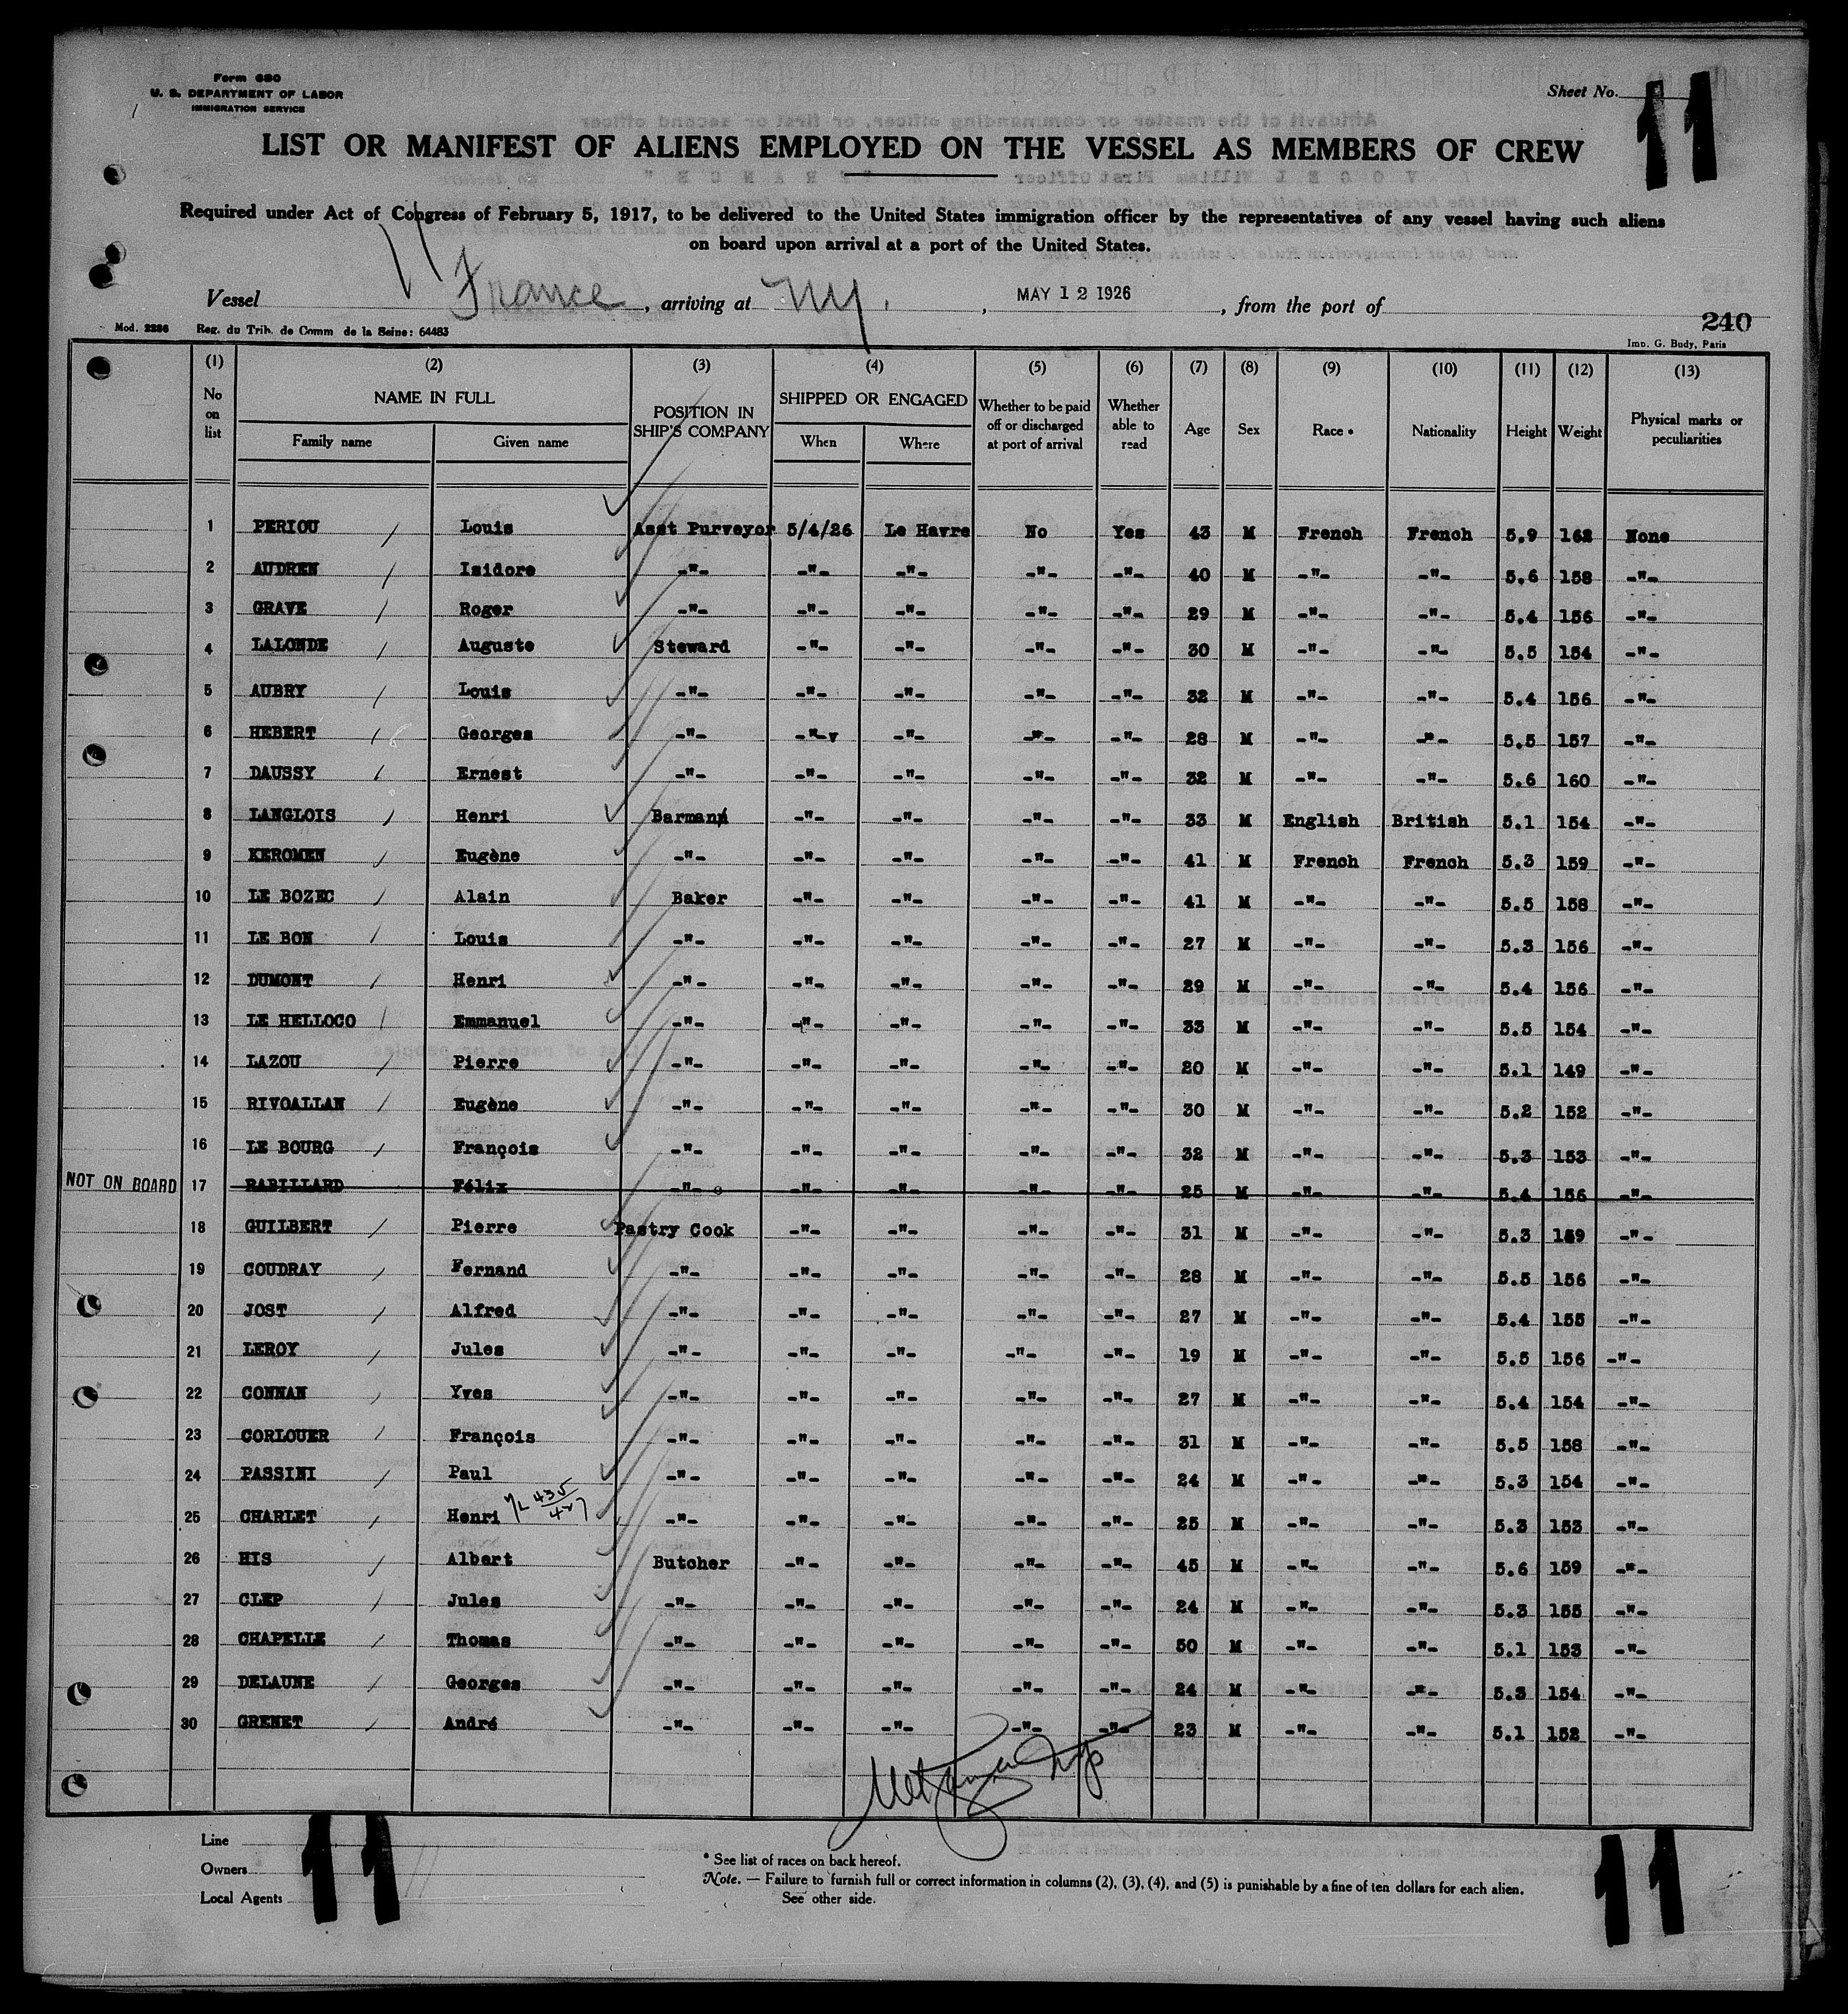 Form 680
U. S. DEPARTMENT OF LABOR
IMMIGRATION SERVICE
Sheet No. 11
LIST OR MANIFEST OF ALIENS EMPLOYED ON THE VESSEL AS MEMBERS OF CREW
Required under Act of Congress of February 5, 1917, to be delivered to the United States immigration officer by the representatives of any vessel having such aliens
on board upon arrival at a port of the United States.
Vessel France, arriving at NY., MAY 12 1926, from the port of
Mod. 2286 Reg. du Trib. de Comm de la Seine: 64483 240
Imp. G. Budy, Paris
(1) (2) (3) (4) (5) (6) (7) (8) (9) (10) (11) (12) (13)
No on list NAME IN FULL Family name Given name POSITION IN SHIP'S COMPANY SHIPPED OR ENGAGED When Where Whether to be paid off or discharged at port of arrival Whether able to read Age Sex Race * Nationality Height Weight Physical marks or peculiarities
1 PERIOU Louis Asst Purveyor 5/4/26 Le Havre No Yes 43 M French French 5.9 162 None
2 AUDREN Isidore -"- -"- -"- -"- -"- 40 M -"- -"- 5.6 158 -"-
3 GRAVE Roger -"- -"- -"- -"- -"- 29 M -"- -"- 5.4 156 -"-
4 LALONDE Auguste Steward -"- -"- -"- -"- 30 M -"- -"- 5.5 154 -"-
5 AUBRY Louis -"- -"- -"- -"- -"- 32 M -"- -"- 5.4 156 -"-
6 HEBERT Georges -"- -"-v -"- -"- -"- 28 M -"- -"- 5.5 157 -"-
7 DAUSSY Ernest -"- -"- -"- -"- -"- 32 M -"- -"- 5.6 160 -"-
8 LANGLOIS Henri Barman -"- -"- -"- -"- 33 M English British 5.1 154 -"-
9 KEROMEN Eugène -"- -"- -"- -"- -"- 41 M French French 5.3 159 -"-
10 LE BOZEC Alain Baker -"- -"- -"- -"- 41 M -"- -"- 5.5 158 -"-
11 LE BON Louis -"- -"- -"- -"- -"- 27 M -"- -"- 5.3 156 -"-
12 DUMONT Henri -"- -"- -"- -"- -"- 29 M -"- -"- 5.4 156 -"-
13 LE HELLOCO Emmanuel -"- -"- -"- -"- -"- 33 M -"- -"- 5.5 154 -"-
14 LAZOU Pierre -"- -"- -"- -"- -"- 20 M -"- -"- 5.1 149 -"-
15 RIVOALLAN Eugène -"- -"- -"- -"- -"- 30 M -"- -"- 5.2 152 -"-
16 LE BOURG François -"- -"- -"- -"- -"- 32 M -"- -"- 5.3 153 -"-
NOT ON BOARD 17 RABILLARD Félix -"- -"- -"- -"- -"- 25 M -"- -"- 5.4 156 -"-
18 GUILBERT Pierre Pastry Cook -"- -"- -"- -"- 31 M -"- -"- 5.3 159 -"-
19 COUDRAY Fernand -"- -"- -"- -"- -"- 28 M -"- -"- 5.5 156 -"-
20 JOST Alfred -"- -"- -"- -"- -"- 27 M -"- -"- 5.4 155 -"-
21 LEROY Jules -"- -"- -"- -"- -"- 19 M -"- -"- 5.5 156 -"-
22 CONNAN Yves -"- -"- -"- -"- -"- 27 M -"- -"- 5.4 154 -"-
23 CORLOUER François -"- -"- -"- -"- -"- 31 M -"- -"- 5.5 158 -"-
24 PASSINI Paul -"- -"- -"- -"- -"- 24 M -"- -"- 5.3 154 -"-
25 CHARLET Henri 435/427 -"- -"- -"- -"- -"- 25 M -"- -"- 5.3 153 -"-
26 HIS Albert Butcher -"- -"- -"- -"- 45 M -"- -"- 5.6 159 -"-
27 CLEP Jules -"- -"- -"- -"- -"- 24 M -"- -"- 5.3 155 -"-
28 CHAPELLE Thomas -"- -"- -"- -"- -"- 50 M -"- -"- 5.1 153 -"-
29 DELAUNE Georges -"- -"- -"- -"- -"- 24 M -"- -"- 5.3 154 -"-
30 GRENET André -"- -"- -"- -"- -"- 23 M -"- -"- 5.1 152 -"-
Line
Owners
Local Agents
11
* See list of races on back hereof.
Note. — Failure to furnish full or correct information in columns (2), (3), (4), and (5) is punishable by a fine of ten dollars for each alien.
See other side.
11